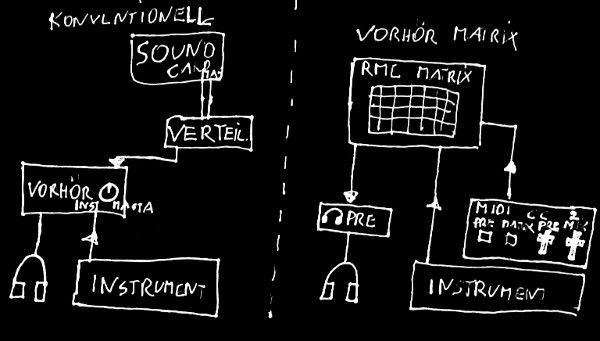 KONVENTIONELL
SOUND
VERTEIL.
VORHÖR
INST
INSTRUMENT
VORHÖR MATRIX
RME MATRIX
PRE
MIDI CC 2
PRE MATRIX PRE MIX
INSTRUMENT